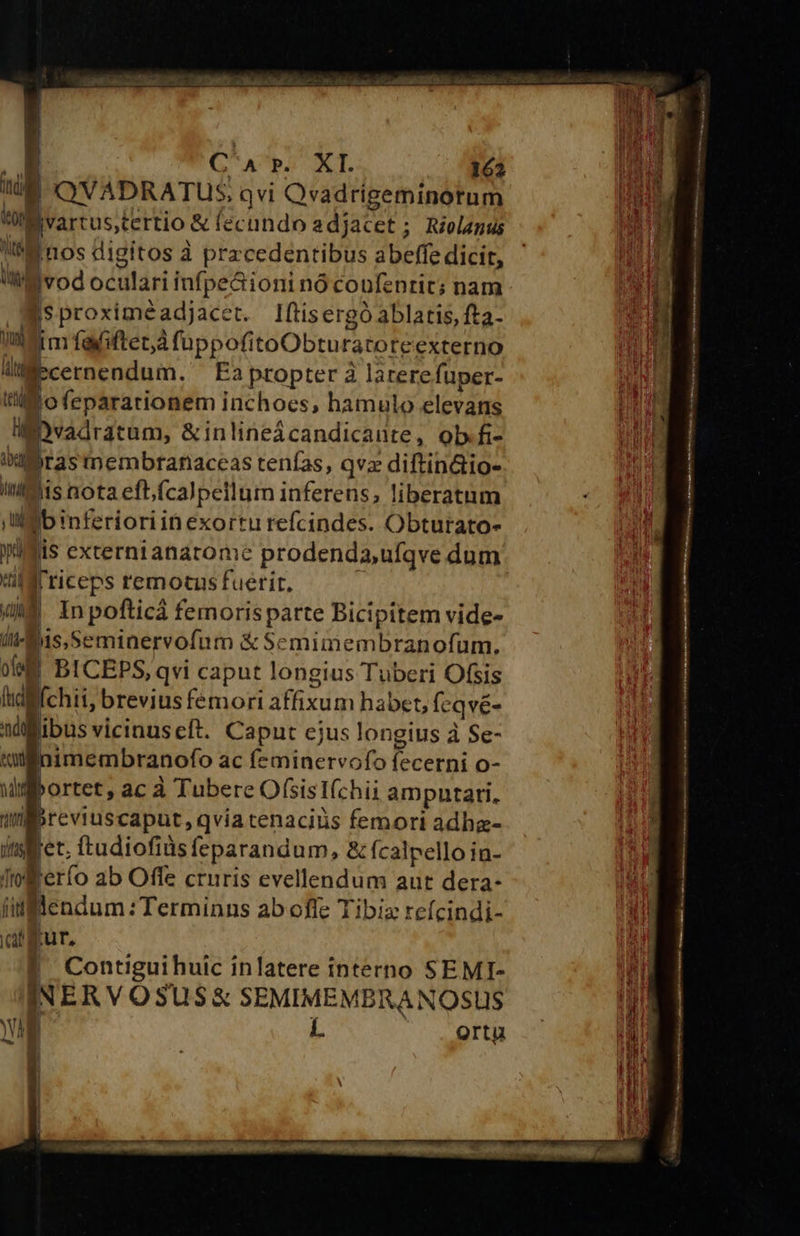 CAP. XI. 161
QVADRATUS, qvi Qvadrigeminorum
vartus, tertio & ſecundo adjacet; Riolanus
nos digitos à præcedentibus abeſſe dicit,
vod oculari inſpectioni nō conſentit; nam
s proximè adjacet. Iſtis ergò ablatis, ſta-
im ſeſe ſiſtet, à ſuppoſito Obturatore externo
cernendum. Ea propter à latere ſuper-
o ſeparationem inchoes, hamulo elevans
Qvadratum, & in lineâ candicante, ob fi-
ras membranaceas tenſas, qvæ diſtinctio-
is nota eſt, ſcalpellum inferens, liberatum
b inferiori in exortu reſcindes. Obturato-
is externi anatome prodenda, uſqve dum
Triceps remotus fuerit.
In poſticâ femoris parte Bicipitem vide-
is, Seminervoſum & Semimembranoſum.
BICEPS, qvi caput longius Tuberi Oſsis
ſchii, brevius femori affixum habet, ſeqvé-
ibus vicinus eſt. Caput ejus longius à Se-
nimembranoſo ac ſeminervoſo ſecerni o-
portet, ac à Tubere Oſsis Iſchii amputari,
breviuscaput, qvia tenaciùs femori adhæ-
ret, ſtudioſiùs ſeparandum, & ſcalpello in-
erſo ab Oſſe cruris evellendum aut dera-
dendum: Terminus ab oſſe Tibiæ reſcindi-
ur.
Contigui huic in latere interno SEMI-
NERVOSUS & SEMIMEMBRANOSUS
L ortu